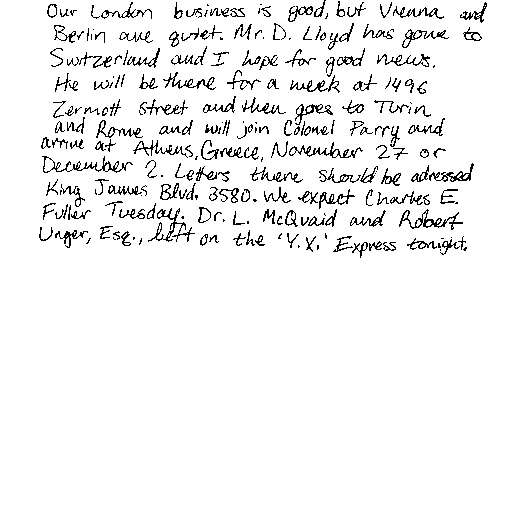 Our London business is good, but Vienna and
Berlin are quiet. Mr. D. Lloyd has gone to
Switzerland and I hope for good news.
He will be there for a week at 1496
Zermott Street and then goes to Turin
and Rome and will join Colonel Parry and
arrive at Athens, Greece, November 27 or
December 2. Letters there should be adressed
King James Blvd. 3580. We expect Charles E.
Fuller Tuesday. Dr. L. McQuaid and Robert
Unger, Esq., left on the 'Y.X.' Express tonight.